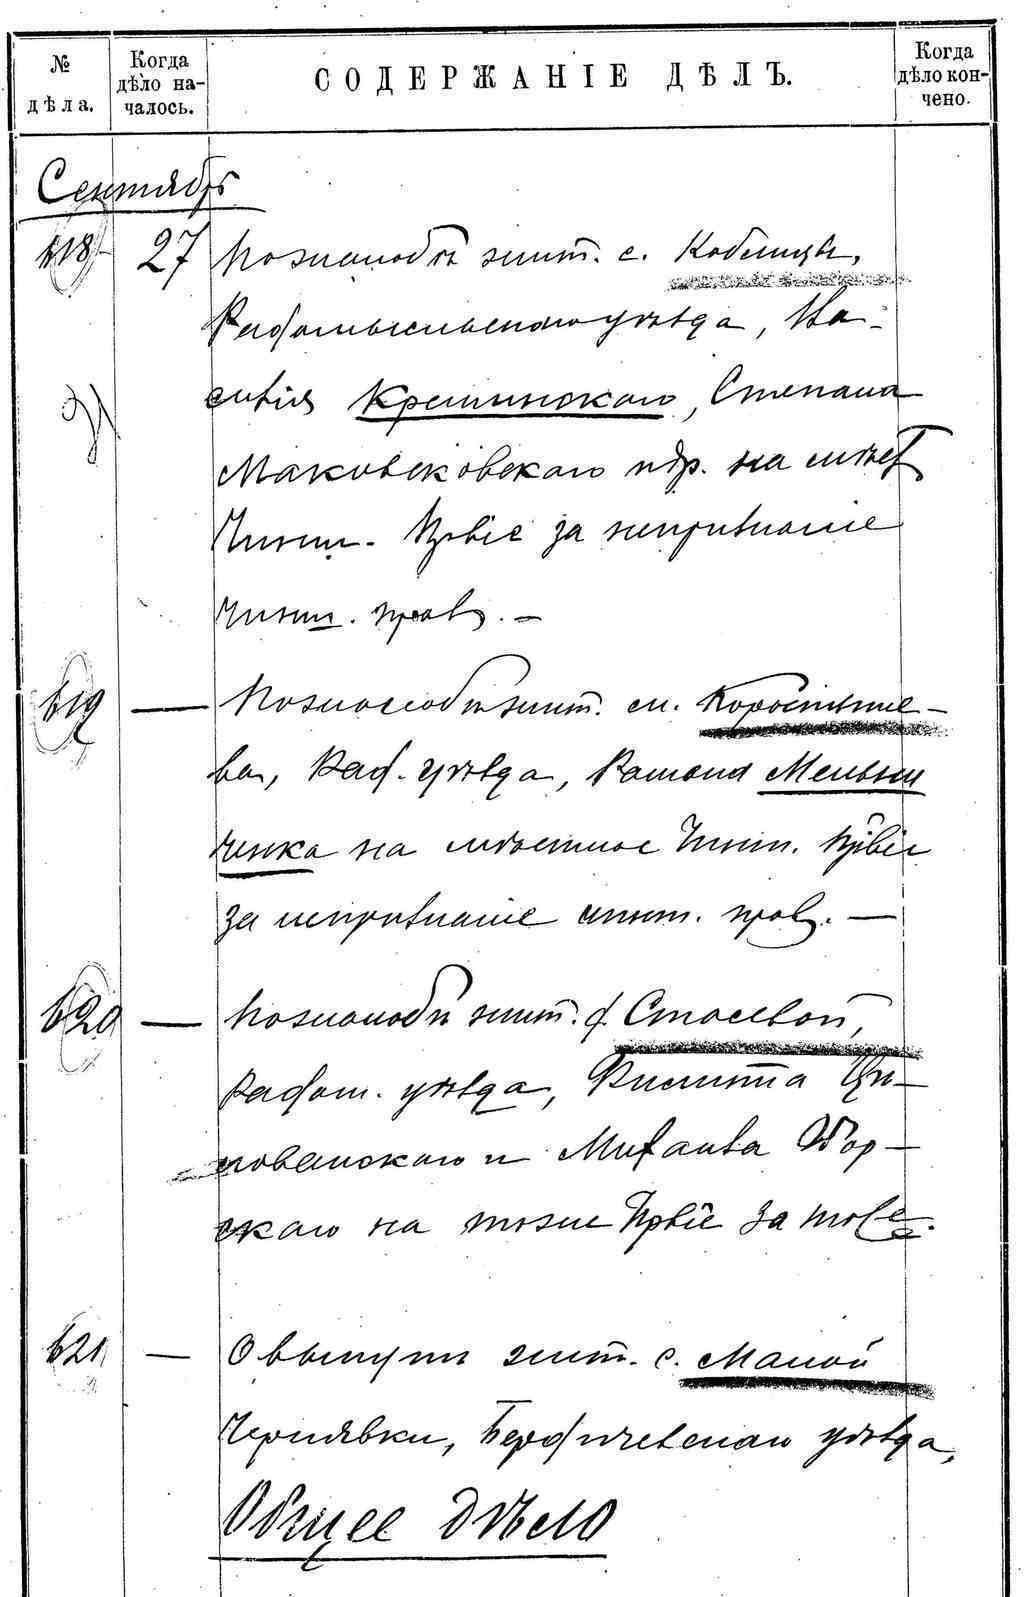 № дѣла.
Когда дѣло началось.
СОДЕРЖАНІЕ ДѢЛЪ.
Когда дѣло кончено.
Сентябрь
618 27 По жалобѣ жит. с. Кобылицы,
Радомысльскаго уѣзда, Ва-
силія Крешинскаго, Степана
Маковсковскаго и др. на мѣст
Чинш. Пр̃віе за непризнаніе
чинш. прав. —
619 — По жалобѣ жит. м. Коростыше-
ва, Рад. уѣзда, Романа Мельни
ченка на мѣстное Чинш. Пр̃віе
за непризнаніе чинш. прав. —
620 — По жалобѣ жит. д. Ставевой,
Радом. уѣзда, Филиппа Ци-

скаго на тоже Пр̃віе за тоже.
621 — О выкупѣ жит. с. Малой
Чернявки, Бердичевскаго уѣзда,
Общее дѣло